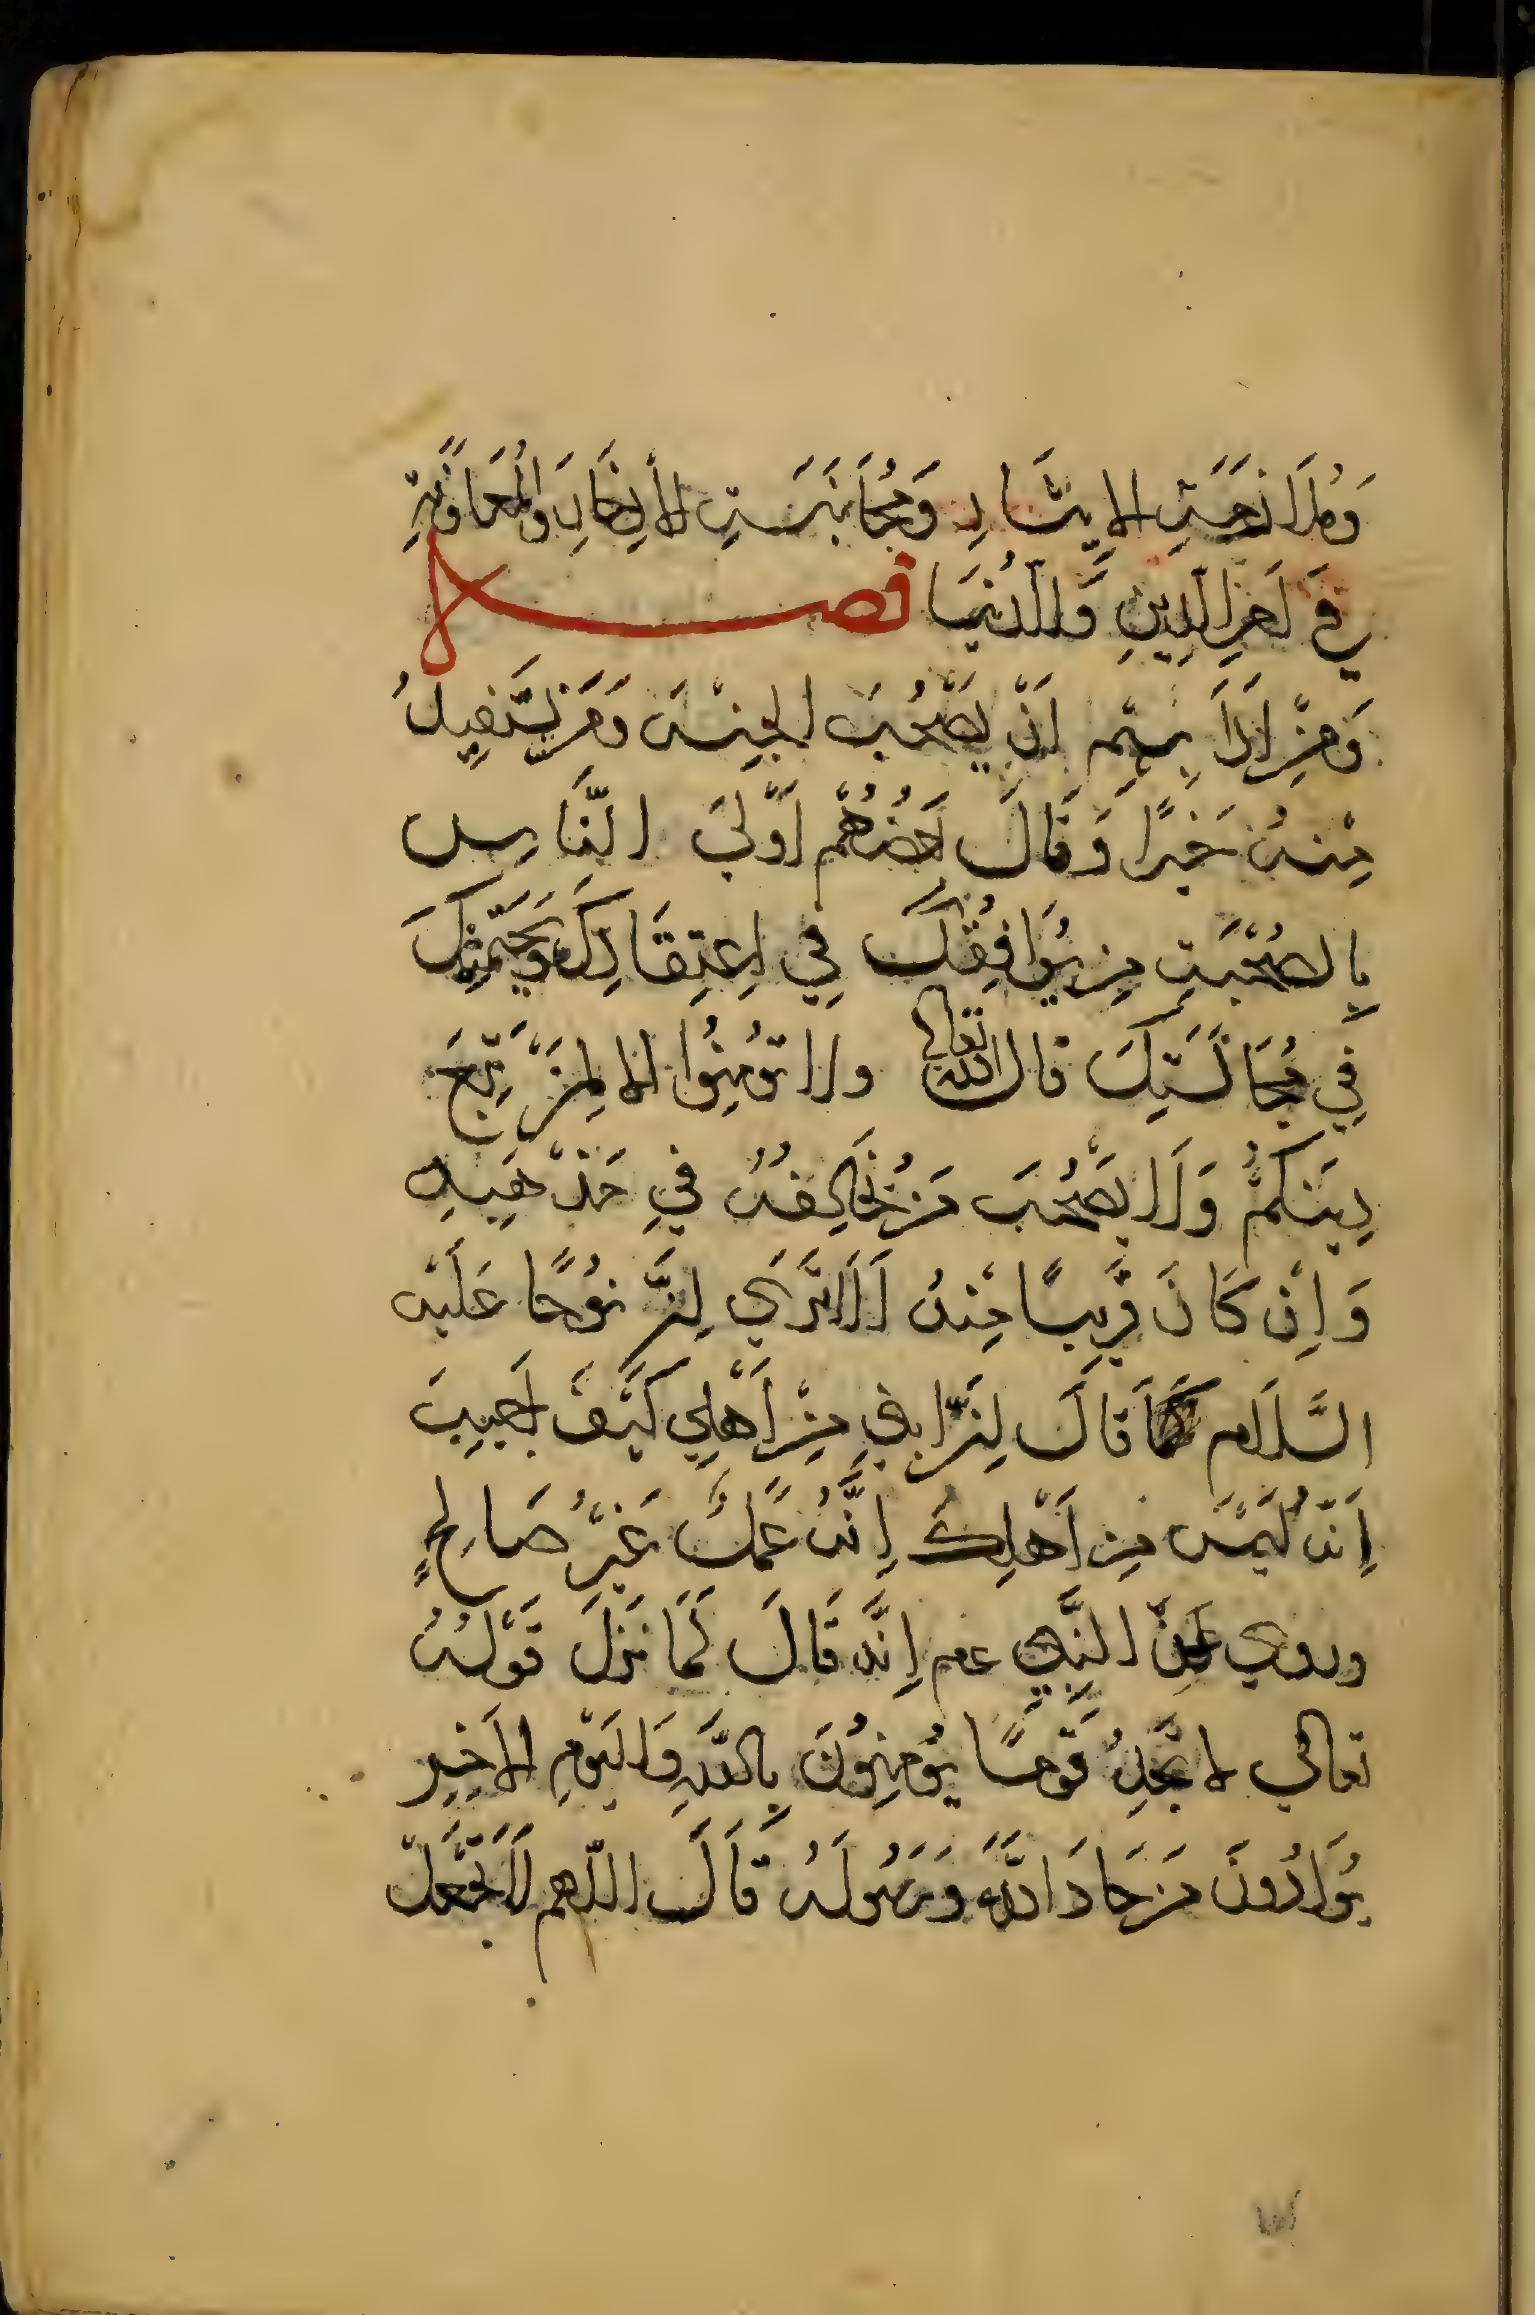 وَمُلَازَمَتِ الإِيثَارِ وَمُجَانَبَتِ الأِدِّخَارِ وَالْمُعَاوَنَةِ
فِي أَمْرِ الدِّينِ وَالدُّنْيَا فصل
وَمِنْ آدَابِهِمْ أَنْ يَصْحَبَ الجِنْسَ وَمَنْ يَسْتَفِيدُ
مِنْهُ خَيْرًا وَقَالَ بَعْضُهُمْ أَوْلَى النَّاسِ
بِالصُحْبَتِ مِن يُوَافِقُكَ فِي اِعْتِقَادِكَ وَيَحْتَشِمُكَ
فِي مُجَالَسَتِكَ قال الله تعالى ولا تؤمِنُوا الا لِمَنْ تَبِعَ
دِينَكُمْ وَلَا يَصْحَبَ مَنْ يُخَالِفُهُ فِي مَذْهَبِهِ
وَاِنْ كَانَ قَرِيبًا مِنْهُ أَلَا تَرَى اِنَّ نُوحًا عَلَيْهِ
السَّلَام لَمَّا قَالَ اِنَّ ابْنِي مِنْ أَهْلِي كَيْفَ أُجِيبَ
اِنَّهُ لَيْسَ مِن أَهْلِكَ اِنَّهُ عَمَلٌ غَيْرُ صَالِحٍ
وروي عَنِ النَّبِيِ عم اِنَّهُ قَالَ لَمَّا نَزَلَ قَوْلُهُ
تعالى لا تَجِدُ قَوْمًا يُؤْمِنُونَ بِاللَّهِ وَالْيَوْمِ الآخِرِ
يُوَادُّونَ مَنْ حَادَّ اللَّهَ وَرَسُولَهُ قَالَ اللّهم لَا تَجْعَلْ